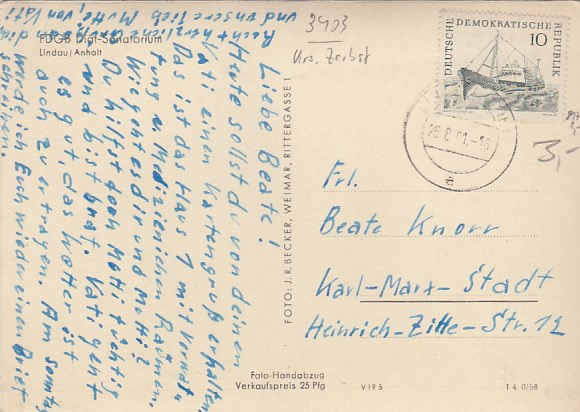 FDGB Diät-Sanatorium
Lindau/Anhalt
Liebe Beate!
Heute sollst du von deinen
Vati einen Kartengruß erhalten,
Das ist das Haus 1 mit Verwal-
tung u. Medizinischen Räumen.
Wie geht es dir und Mutti?
Du hilfst doch Mutti tüchtig
und bist brav. Vati geht
es gut, das Wetter ist
auch zu ertragen. Am Sonntag
werde ich Euch wieder einen Brief
schreiben.
Recht herzliche Grüße an dich
und unsere lieb Mutti, von Vati
FOTO: J. R. BECKER, WEIMAR, RITTERGASSE 1
3403
Krs. Zerbst
DEUTSCHE DEMOKRATISCHE REPUBLIK
10
3,-
Frl.
Beate Knorr
Karl-Marx-Stadt
Heinrich-Zille-Str. 12
Foto-Handabzug
Verkaufspreis 25 Pfg
V 19 5
T 4 0/58